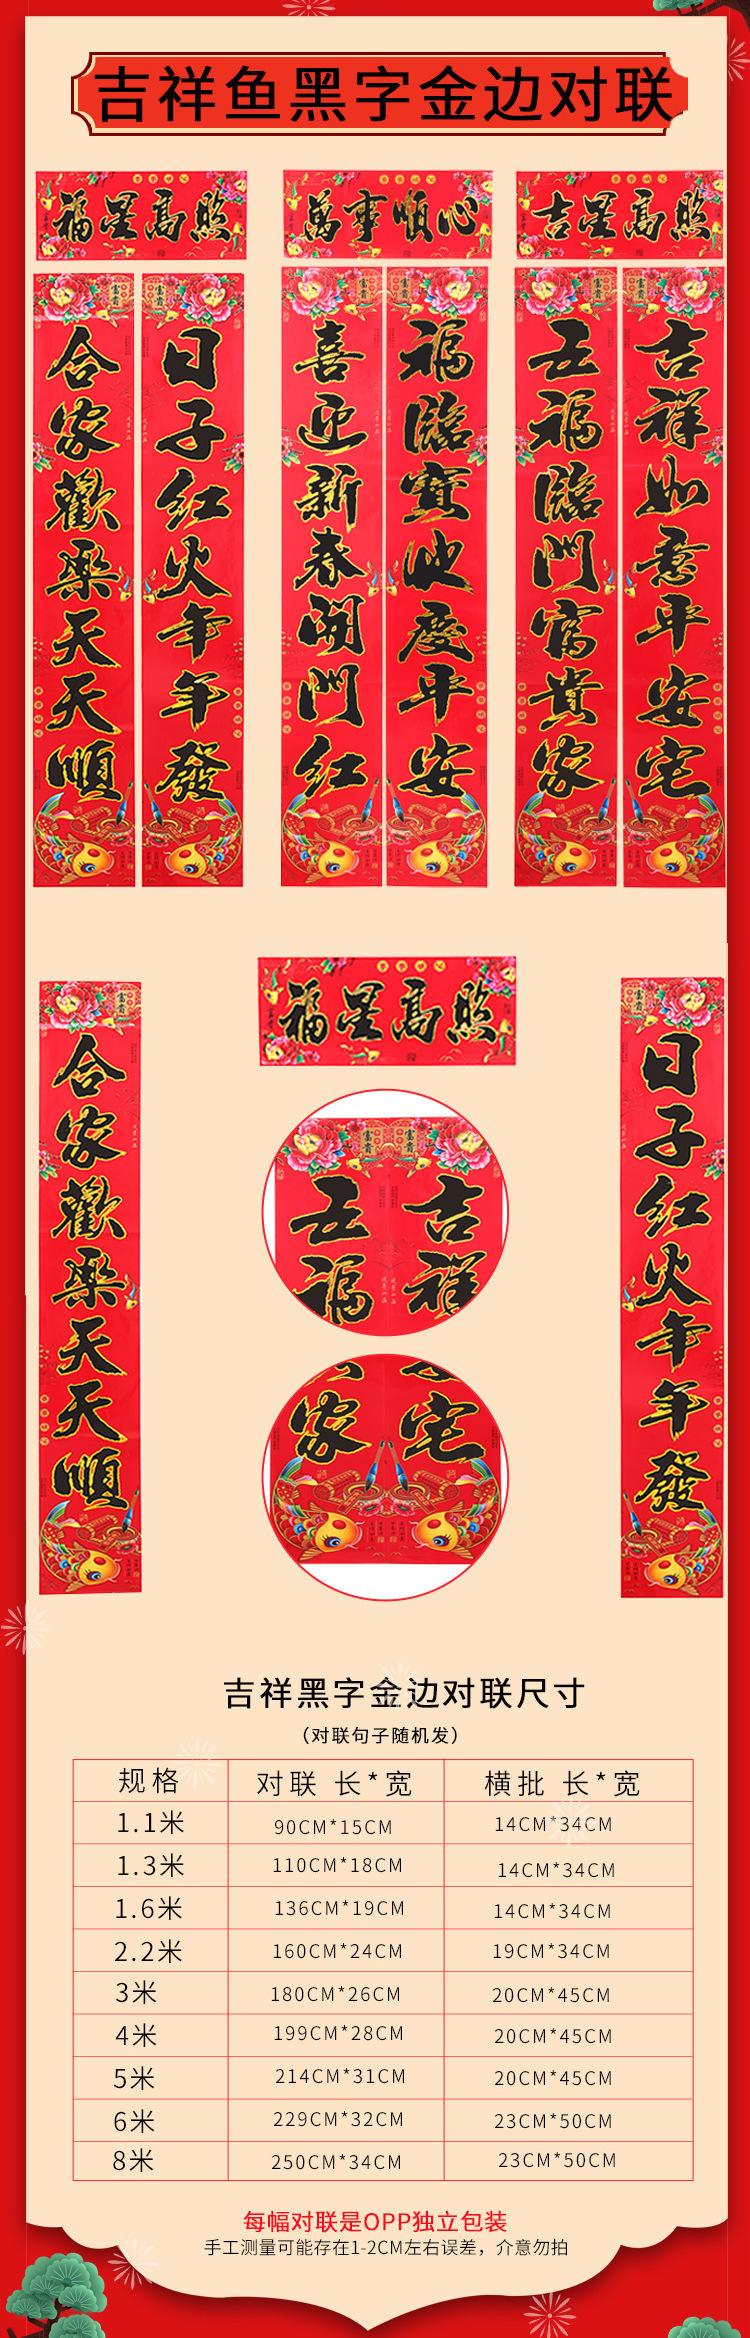 吉祥鱼黑字金边对联
福星高照
萬事順心
吉星高照
富貴
富貴
富貴
富貴
合家歡樂天天順
日子红火年年發
喜迎新春開門红
福臨寶地慶平安
五福臨門富貴家
吉祥如意平安宅
福星高照
富貴
富貴
合家歡樂天天順
日子红火年年發
富貴
富貴
五福
吉祥
家
宅
吉祥黑字金边对联尺寸
（对联句子随机发）
规格 对联 长*宽 横批 长*宽
1.1米 90CM*15CM 14CM*34CM
1.3米 110CM*18CM 14CM*34CM
1.6米 136CM*19CM 14CM*34CM
2.2米 160CM*24CM 19CM*34CM
3米 180CM*26CM 20CM*45CM
4米 199CM*28CM 20CM*45CM
5米 214CM*31CM 20CM*45CM
6米 229CM*32CM 23CM*50CM
8米 250CM*34CM 23CM*50CM
每幅对联是OPP独立包装
手工测量可能存在1-2CM左右误差，介意勿拍